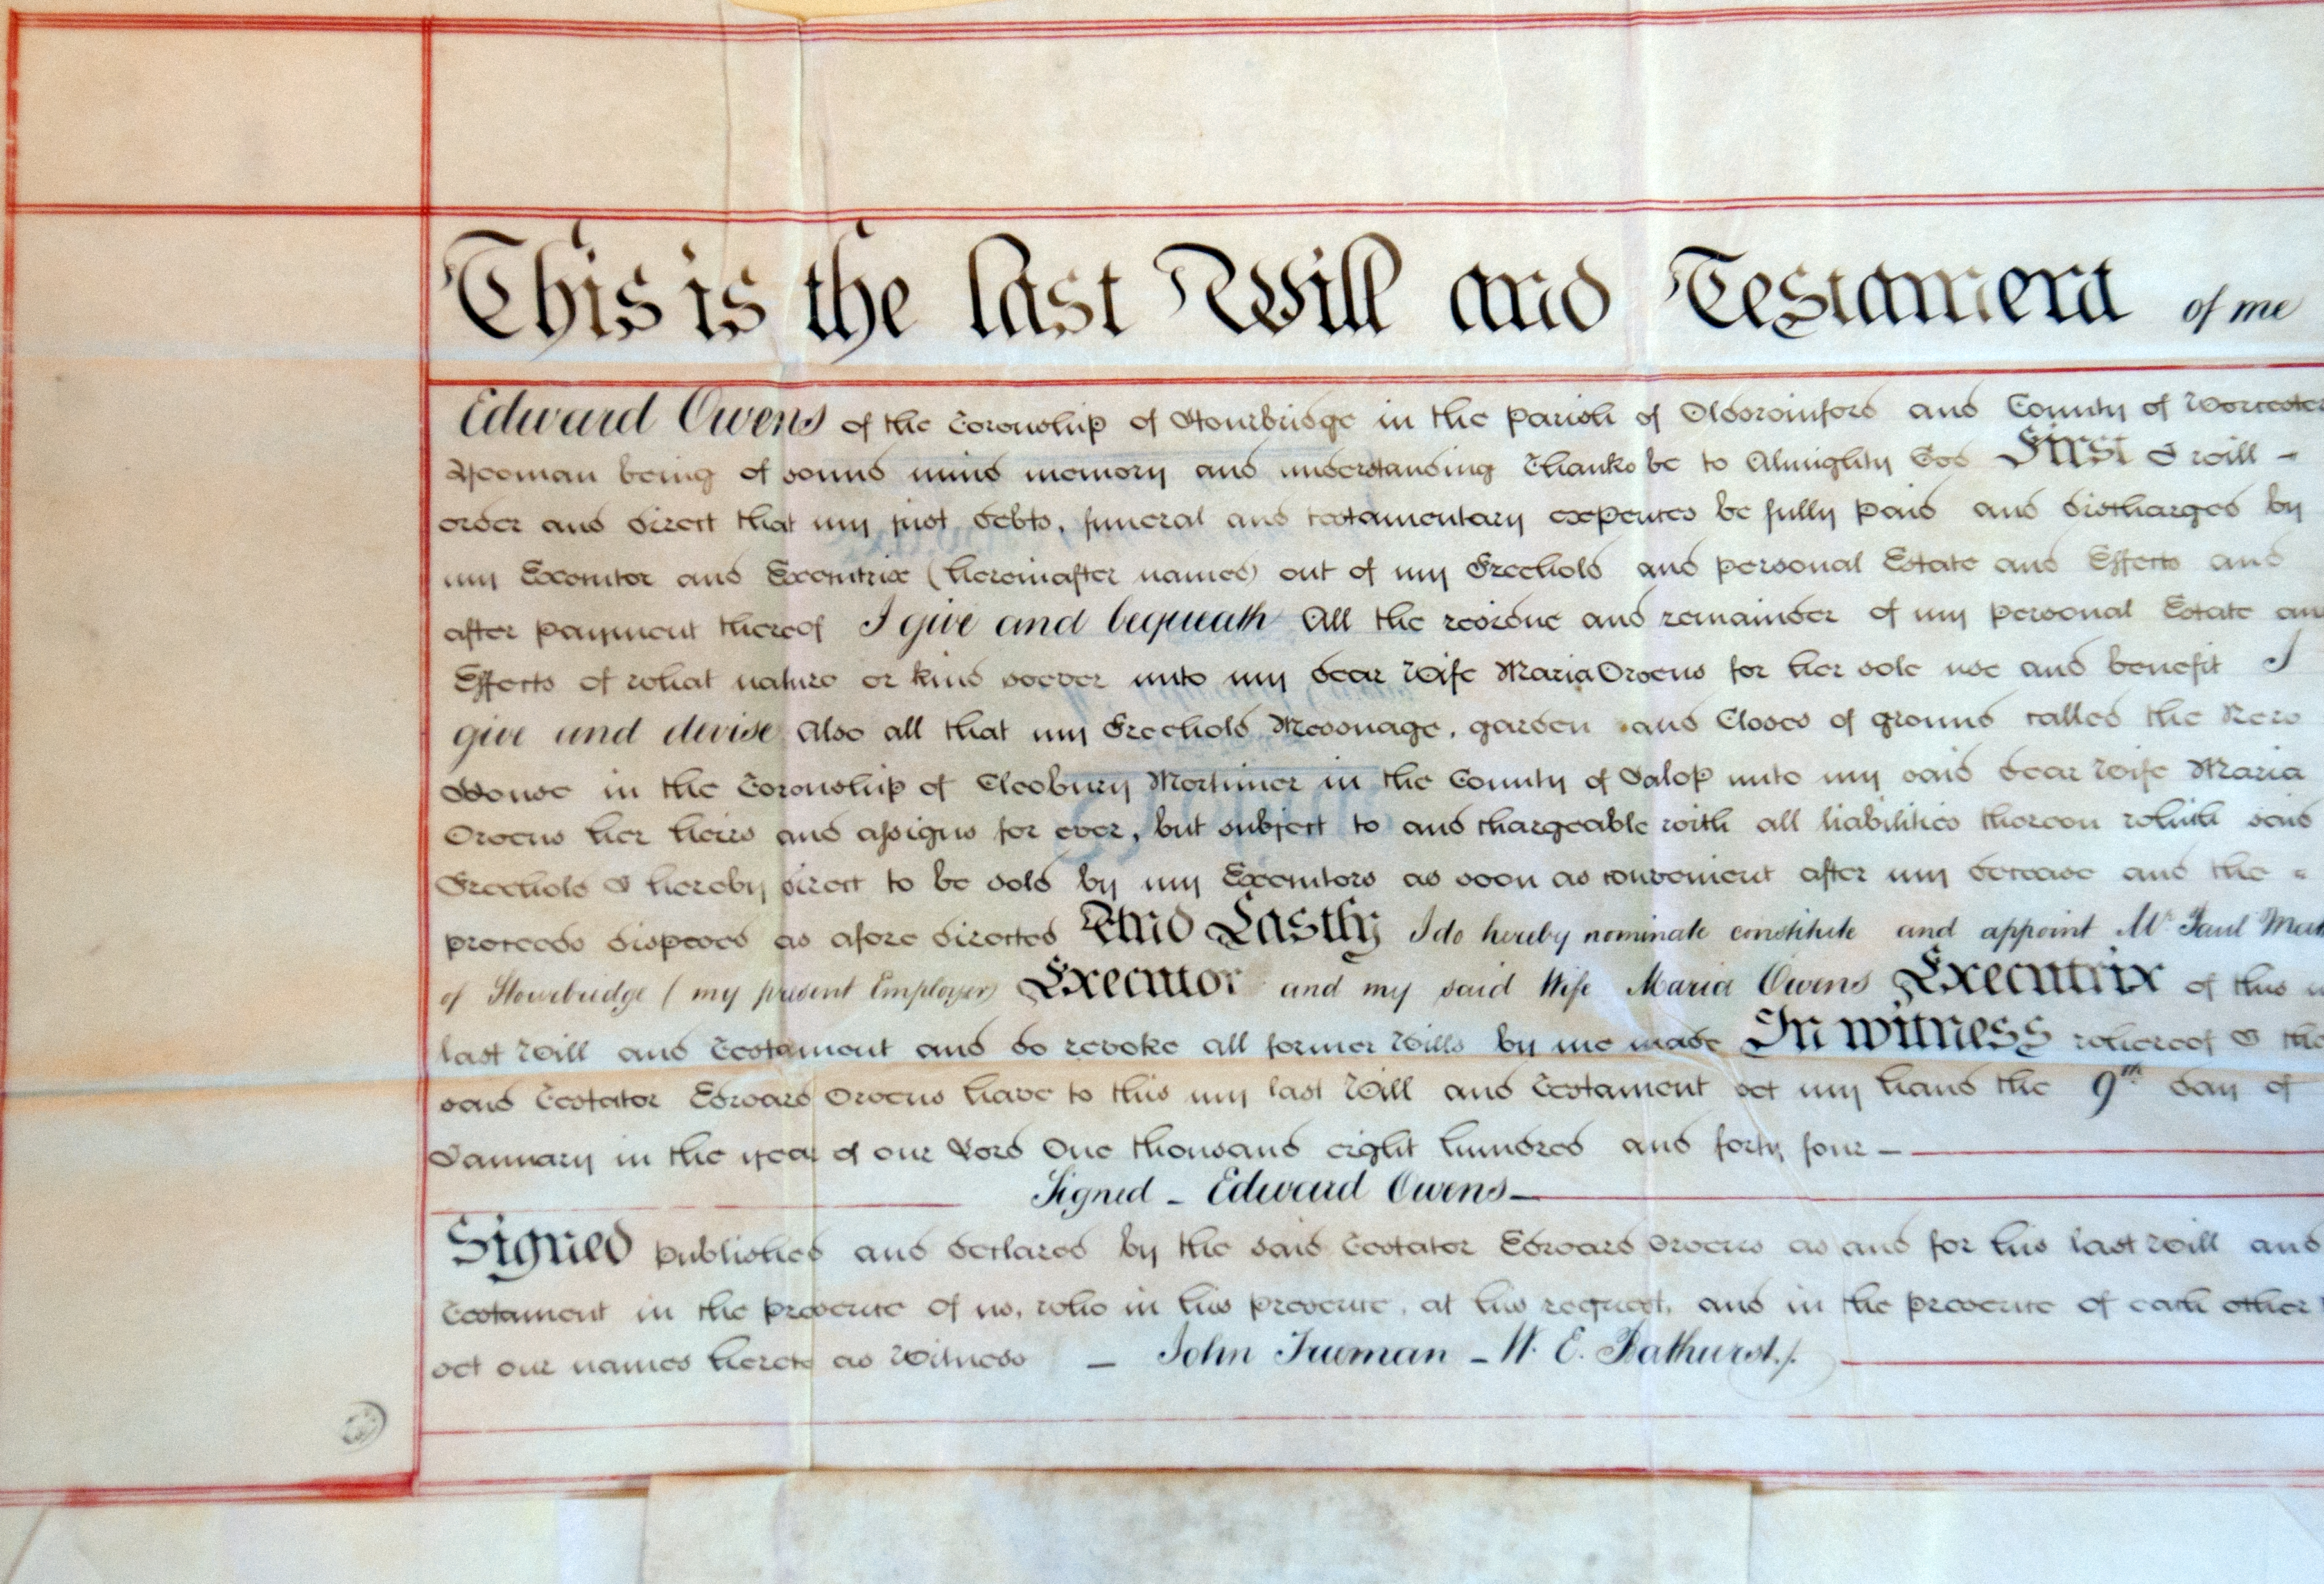 This is the last Will and Testament of me
Edward Owens of the Township of Stourbridge in the Parish of Oldswinford and County of Worcester
Yeoman being of sound mind memory and understanding Thanks be to Almighty God First I will –
order and direct that my just debts, funeral and testamentary expences be fully paid and discharged by
my Executor and Executrix (hereinafter named) out of my Freehold and personal Estate and Effects and
after payment thereof I give and bequeath All the residue and remainder of my personal Estate an
Effects of what nature or kind soever unto my dear Wife Maria Owens for her sole use and benefit I
give and devise Also all that my Freehold Messuage, garden and Closes of ground called the New
House in the Township of Cleobury Mortimer in the County of Salop unto my said dear Wife Maria
Owens her heirs and assigns for ever, but subject to and chargeable with all liabilities thereon which said
Freehold I hereby direct to be sold by my Executors as soon as convenient after my decease and the
proceeds disposed as afore directed And Lastly I do hereby nominate constitute and appoint Mr. Paul
of Stourbridge (my present Employer) Executor and my said Wife Maria Owens Executrix of this
last Will and Testament and do revoke all former Wills by me made In witness whereof I the
said Testator Edward Owens have to this my last Will and Testament set my hand the 9th day of
January in the year of our Lord One thousand eight hundred and forty four –
Signed – Edward Owens –
Signed published and declared by the said Testator Edward Owens as and for his last Will and
Testament in the presence of us, who in his presence, at his request, and in the presence of each other
set our names hereto as Witness – John Trueman – W. E. Bathurst./.